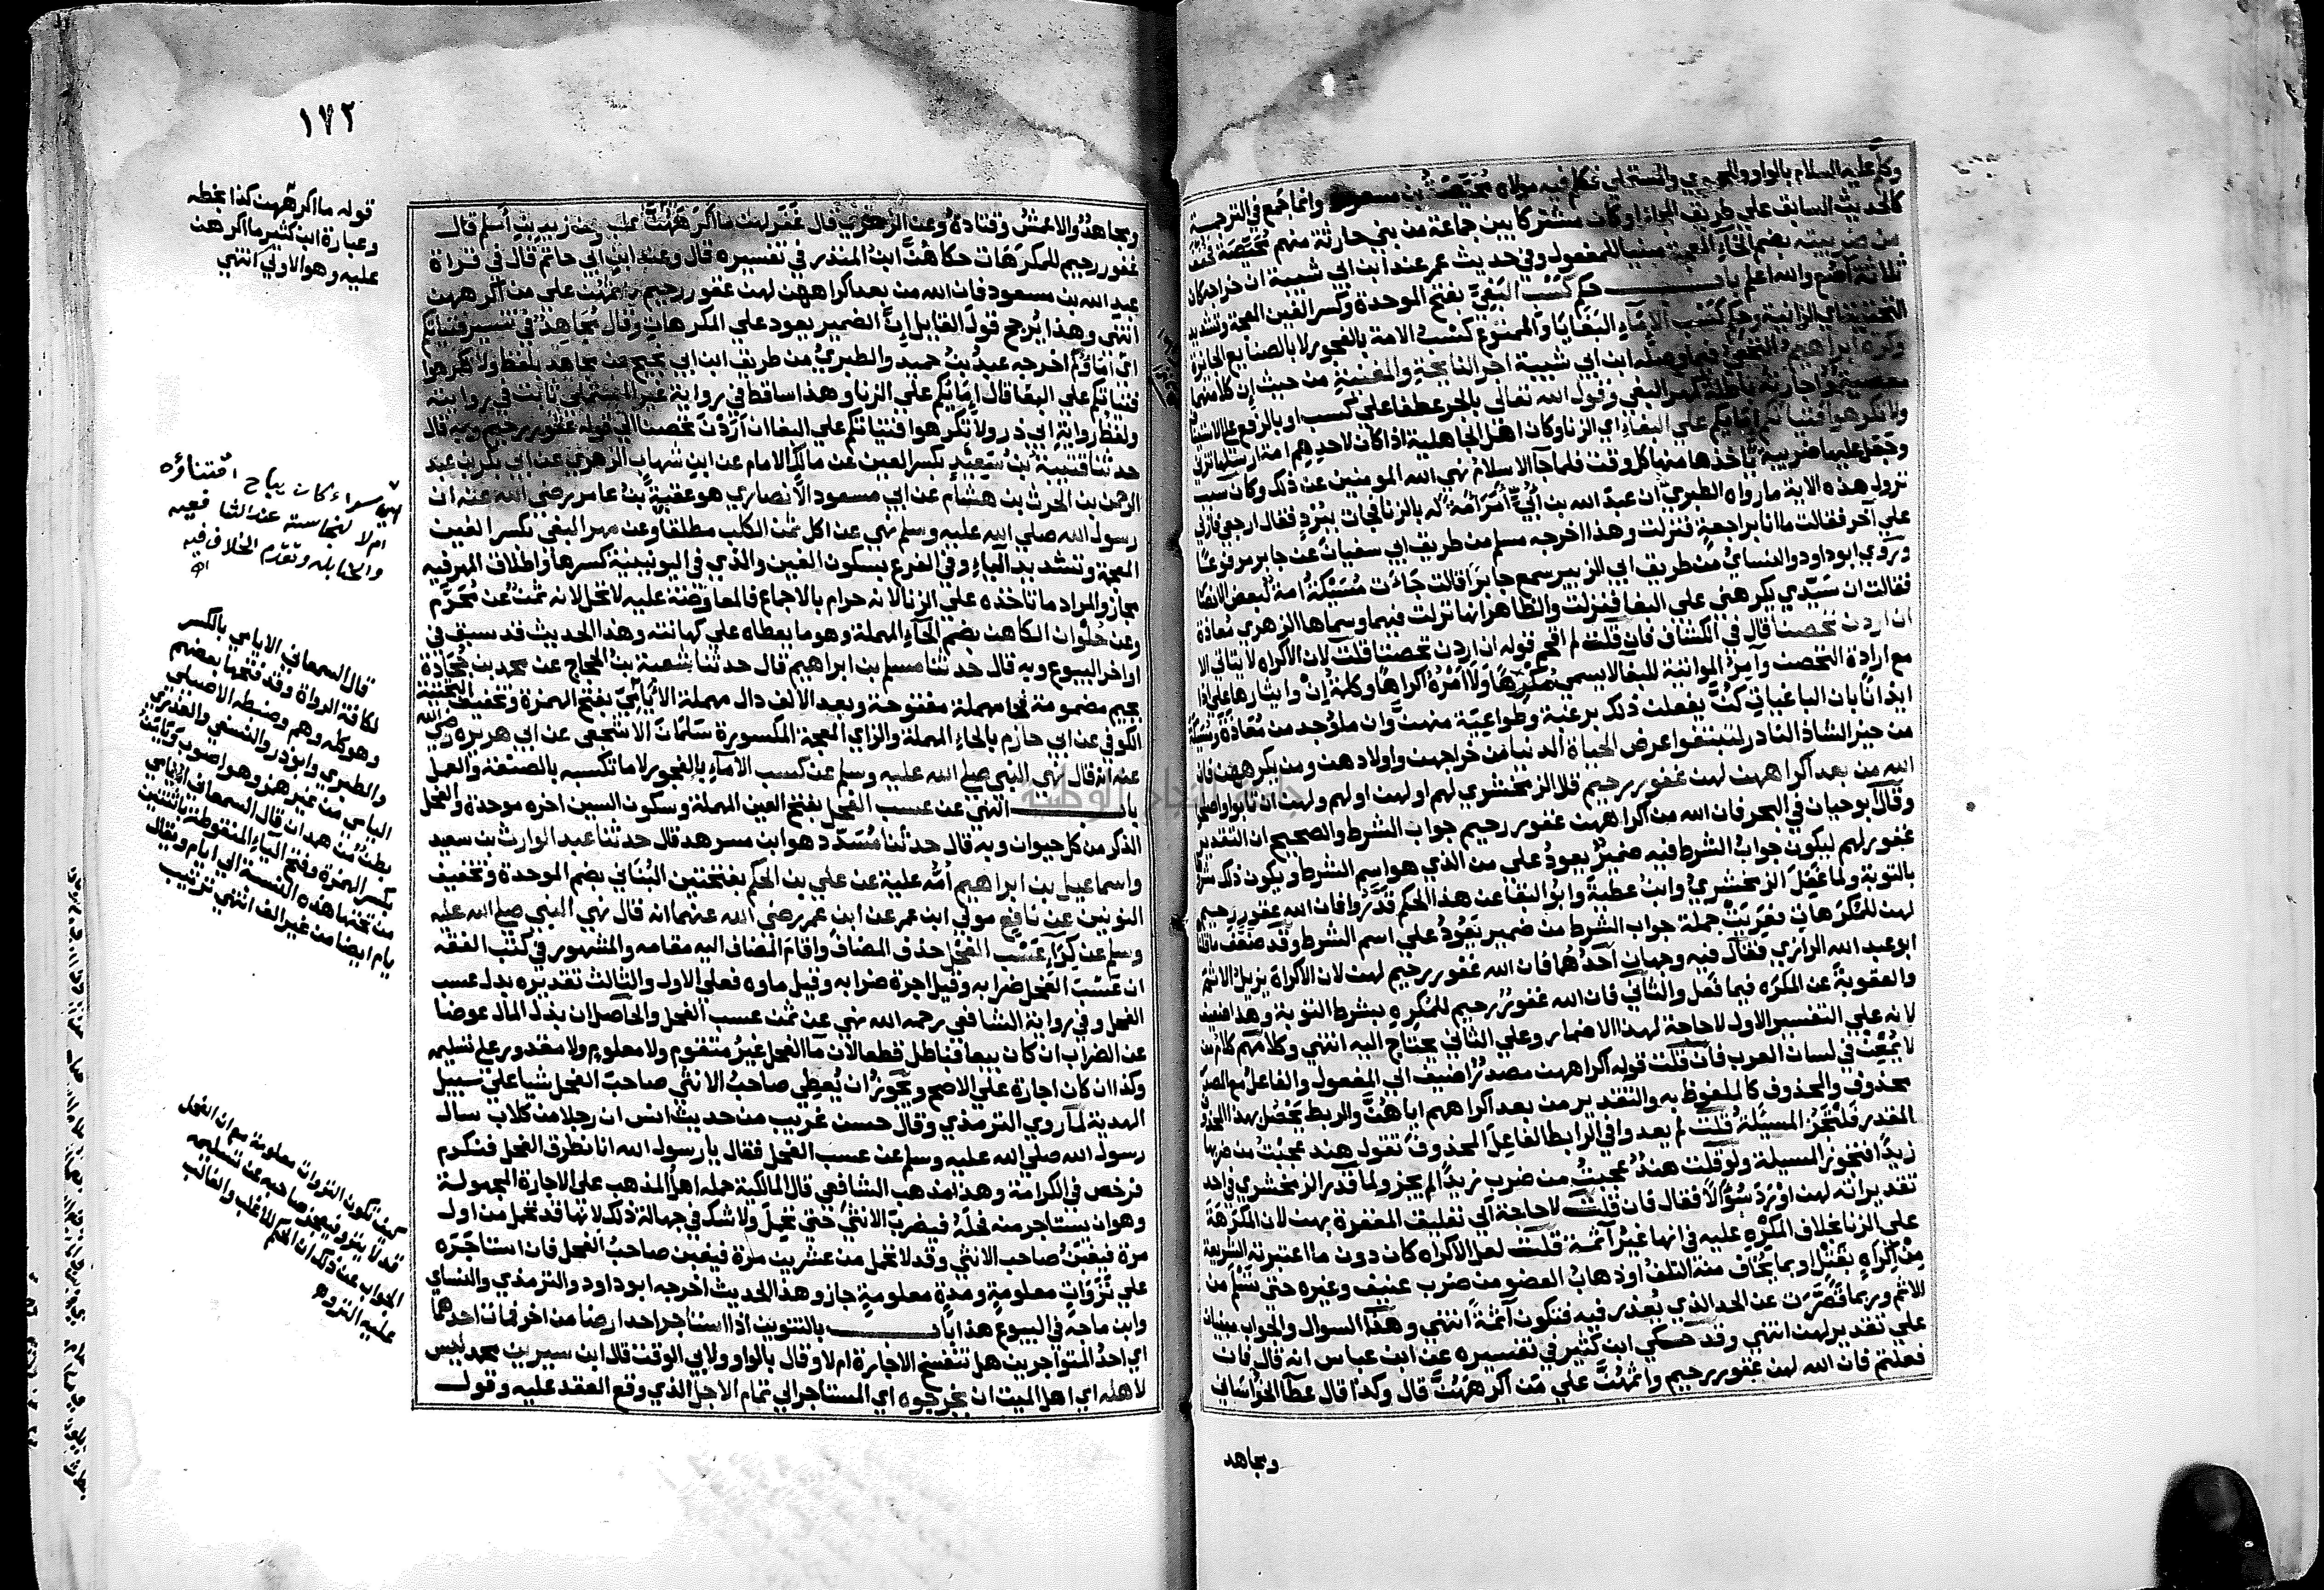 وكلم عليه السلام بالواو والحموي والمستملي فكلم فيه مولاه محيصة بن مسعود وانما جمع في الترجمة
كالحديث السابق علي طريق المجاز او كان مشتركا بين جماعة من بني حارثة منهم محيصة فخفف
من ضريبته بضم الخاء المعجمة مبنيا للمفعول وفي حديث عمر عند ابن ابي شيبة ان خراجه كان
ثلاثة اصع والله اعلم باب حكم كسب البغي بفتح الموحدة وكسر الغين المعجمة وتشديد
التحتية اي الزانية وحكم كسب الاماء البغايا والممنوع كسب الامة بالفجور لا بالصنايع الجائزة
وكره ابراهيم النخعي فيما وصله ابن ابي شيبة اجر النايحة والمغنية من حيث ان كلا منهما
معصية واجارته باطلة كمهر البغي وقول الله تعالى بالجر عطفا علي كسب او بالرفع علي الاستئناف
ولا تكرهوا فتياتكم امايكم علي البغاء اي الزنا وكان اهل الجاهلية اذا كان لاحدهم امة ارسلها تزني
وجعل عليها ضريبة ياخذها منها كل وقت فلما جا الاسلام نهي الله المومنين عن ذلك وكان سبب
نزول هذه الاية ما رواه الطبري ان عبد الله بن ابي امر امة له بالزنا فجات ببرد فقال ارجعي فازني
علي آخر فقالت ما انا براجعة فنزلت وهذا اخرجه مسلم من طريق ابي سفيان عن جابر مرفوعا
وروي ابو داود والنسائي من طريق ابي الزبير سمع جابرا قالت جاءت مسيكة امة لبعض الانصار
فقالت ان سيدي يكرهني علي البغا فنزلت والظاهر انها نزلت فيهما وسماها الزهري معاذة
ان اردن تحصنا قال في الكشاف فان قلت لم اقحم قوله ان اردن تحصنا قلت لان الاكراه لا يتاتي الا
مع ارادة التحصن وآمر المواتية للبغا لا يسمي مكرها ولا امره اكراها وكلمة ان وايثارها علي اذا
ايذانا بان الباغيات كن يفعلن ذلك برغبة وطواعية منهن وان ما وجد من معاذة ومسيكة
من حيز الشاذ النادر لتبتغوا عرض الحياة الدنيا من خراجهن واولادهن ومن يكرههن فان
الله من بعد اكراههن لهن غفور رحيم قلا الزمخشري لهم او لهن او لهم ولهن ان تابوا واصلحوا
وقال ابو حيان في البحر فان الله من اكراههن غفور رحيم جواب الشرط والصحيح ان التقدير
غفور لهم ليكون جواب الشرط فيه ضمير يعود علي من الذي هو اسم الشرط ويكون ذلك مشروطا
بالتوبة ولما غفل الزمخشري وابن عطية وابو البقا عن هذا الحكم قدروا فان الله غفور رحيم
لهن للمكرهات فعريت جملة جواب الشرط من ضمير يعود علي اسم الشرط وقد ضعف ما قلنا
ابو عبد الله الرازي فقال فيه وجهان احدهما فان الله غفور رحيم لهن لان الاكراه يزيل الاثم
والعقوبة عن المكره فيما فعل والثاني فان الله غفور رحيم للمكره بشرط التوبة وهذا ضعيف
لانه علي التفسير الاول لا حاجة لهذا الاضمار وعلي الثاني يحتاج اليه انتهي وكلامهم كلام من
لا يمعن في لسان العرب فان قلت قوله اكراههن مصدر اضيف الي المفعول والفاعل مع المصدر
محذوف والمحذوف كالملفوظ به والتقدير من بعد اكراههم اياهن والربط يحصل بهذا المحذوف
المقدر فلتجز المسيلة قلت لم يعدوا في الرابط الفاعل المحذوف تقول هند عجبت من ضربها
زيدا فتجوز المسيلة ولو قلت هند عجبت من ضرب زيدا لم يجز ولما قدر الزمخشري في احد
تقديراته لهن اورد سؤالا فقال فان قلت لا حاجة الي تعليق المغفرة بهن لان المكرهة
علي الزنا بخلاف المكره عليه في انها غير آثمة قلت لعل الاكراه كان دون ما اعتبرته الشريعة
من اكراه بقتل او بما يخاف منه التلف او ذهاب العضو من ضرب عنيف وغيره حتي تسلم من
الاثم وربما قصرت عن الحد الذي يعذر فيه فتكون آثمة انتهي وهذا السوال والجواب مبنيان
علي تقدير لهن انتهي وقد حكي ابن كثير في تفسيره عن ابن عباس انه قال فان
فعلتم فان الله لهن غفور رحيم واثمهن علي من اكرههن قال وكذا قال عطا الخراساني
ومجاهد
١٧٢
ومجاهد والاعمش وقتادة وعن الزهري قال غفر لهن ما اكرههن عليه وعن زيد بن أسلم قال
غفور رحيم للمكرهات حكاهن ابن المنذر في تفسيره قال وعند ابن ابي حاتم قال في قراة
عبد الله بن مسعود فان الله من بعد اكراههن لهن غفور رحيم واثمهن علي من اكرههن
انتهي وهذا يرجح قول القايل إن الضمير يعود علي المكرهات وقال مجاهد في تفسير فتياتكم
اي اماؤكم اخرجه عبد بن حميد والطبري من طريق ابن ابي نجيح عن مجاهد بلفظ ولا تكرهوا
فتياتكم علي البغا قال امايكم علي الزنا وهذا ساقط في رواية غير المستملي ثابت في روايته
ولفظ رواية ابي ذر ولا تكرهوا فتياتكم علي البغا ان اردن تحصنا الي قوله غفور رحيم وبه قال
حدثنا قتيبة بن سعيد بكسر العين عن مالك الامام عن ابن شهاب الزهري عن ابي بكر بن عبد
الرحمن بن الحرث بن هشام عن ابي مسعود الانصاري هو عقبة بن عامر رضي الله عنه ان
رسول الله صلي الله عليه وسلم نهي عن اكل ثمن الكلب مطلقا وعن مهر البغي بكسر الغين
المعجمة وتشديد الياء وفي الفرع بسكون الغين والذي في اليونينية كسرها واطلاق المهر فيه
مجاز والمراد ما تاخذه علي الزنا لانه حرام بالاجماع فالمعاوضة عليه لا تحل لانه ثمن عن محرم
وعن حلوان الكاهن بضم الحاء المهملة وهو ما يعطاه علي كهانته وهذا الحديث قد سبق في
اواخر البيوع وبه قال حدثنا مسلم بن ابراهيم قال حدثنا شعبة بن الحجاج عن محمد بن جحادة
بجيم مضمومة فحا مهملة مفتوحة وبعد الالف دال مهملة الايامي بفتح الهمزة وتخفيف التحتية
الكوفي عن ابي حازم بالحاء المهملة والزاي المعجمة المكسورة سلمان الاشجعي عن ابي هريرة رضي الله
عنه انه قال نهي النبي صلي الله عليه وسلم عن كسب الاماء بالفجور لا ما تكسبه بالصنعة والعمل
باب النهي عن عسب الفحل بفتح العين المهملة وسكون السين اخره موحدة والفحل
الذكر من كل حيوان وبه قال حدثنا مسدد هو ابن مسرهد قال حدثنا عبد الوارث بن سعيد
واسماعيل بن ابراهيم أمه علية عن علي بن الحكم بفتحتين البناني بضم الموحدة وتخفيف
النونين عن نافع مولي ابن عمر عن ابن عمر رضي الله عنهما انه قال نهي النبي صلي الله عليه
وسلم عن كراء عسب الفحل حذف المضاف واقام المضاف اليه مقامه والمشهور في كتب الفقه
ان عسب الفحل ضرابه وقيل اجرة ضرابه وقيل ماوه فعلي الاول والثالث تقديره بدل عسب
الفحل وفي رواية الشافعي رحمه الله نهي عن ثمن عسب الفحل والحاصل ان بذل المال عوضا
عن الضراب ان كان بيعا فباطل قطعا لان ماء الفحل غير متقوم ولا معلوم ولا مقدور علي تسليمه
وكذا ان كان اجارة علي الاصح ويجوز ان يعطي صاحب الانثي صاحب الفحل شيا علي سبيل
الهدية لما روي الترمذي وقال حسن غريب من حديث انس ان رجلا من كلاب سال
رسول الله صلي الله عليه وسلم عن عسب الفحل فقال يا رسول الله انا نطرق الفحل فنكرم
فرخص في الكرامة وهذا مذهب الشافعي قال المالكية حمله اهل المذهب علي الاجارة المجهولة
وهو ان يستاجر منه فحله فيضرب الانثي حتي تحمل ولا شك في جهالة ذلك لانها قد تحمل من اول
مرة فيغبن صاحب الانثي وقد لا تحمل من عشرين مرة فيغبن صاحب الفحل فان استاجره
علي نزوات معلومة ومدة معلومة جاز وهذا الحديث اخرجه ابو داود والترمذي والنساي
وابن ماجه في البيوع هذا باب بالتنوين اذا استاجر احد ارضا من اخر فمات احدهما
اي احد المتواجرين هل تنفسخ الاجارة ام لا وقال بالواو ولابي الوقت قال ابن سيرين محمد ليس
لاهله اي اهل الميت ان يخرجوه اي المستاجر الي تمام الاجل الذي وقع العقد عليه وقول
قوله ما اكرههن كذا بخطه
وعبارة ابن كثير ما اكرهن
عليه وهو الاولي انتهي
سواء كان يباح اقتناؤه
ام لا لنجاسته عند الشافعيه
والحنابله وتقدم الخلاف فيه
اه
قال السمعاني الايامي بالكسر
لكافة الرواة وقد فتحها بعضهم
وهو كله وهم وضبطه الاصيلي
والطبري وابو ذر والنسفي والعذري
اليامي من غير همز وهو اصوب ويام
بطن من همدان قال السمعاني الايامي
بكسر الهمزة وفتح الياء المنقوطة باثنتين
من تحتها هذه النسبة الي ايام ويقال
يام ايضا من غير الف انتهي ترتيب
كيف تكون النزوات معلومة مع ان الفحل
قد لا ينزو فيعجز صاحبه عن تسليمه
الجواب عن ذلك ان الحكم للاغلب والغالب
عليه النزوه
جامعة النجاح الوطنية